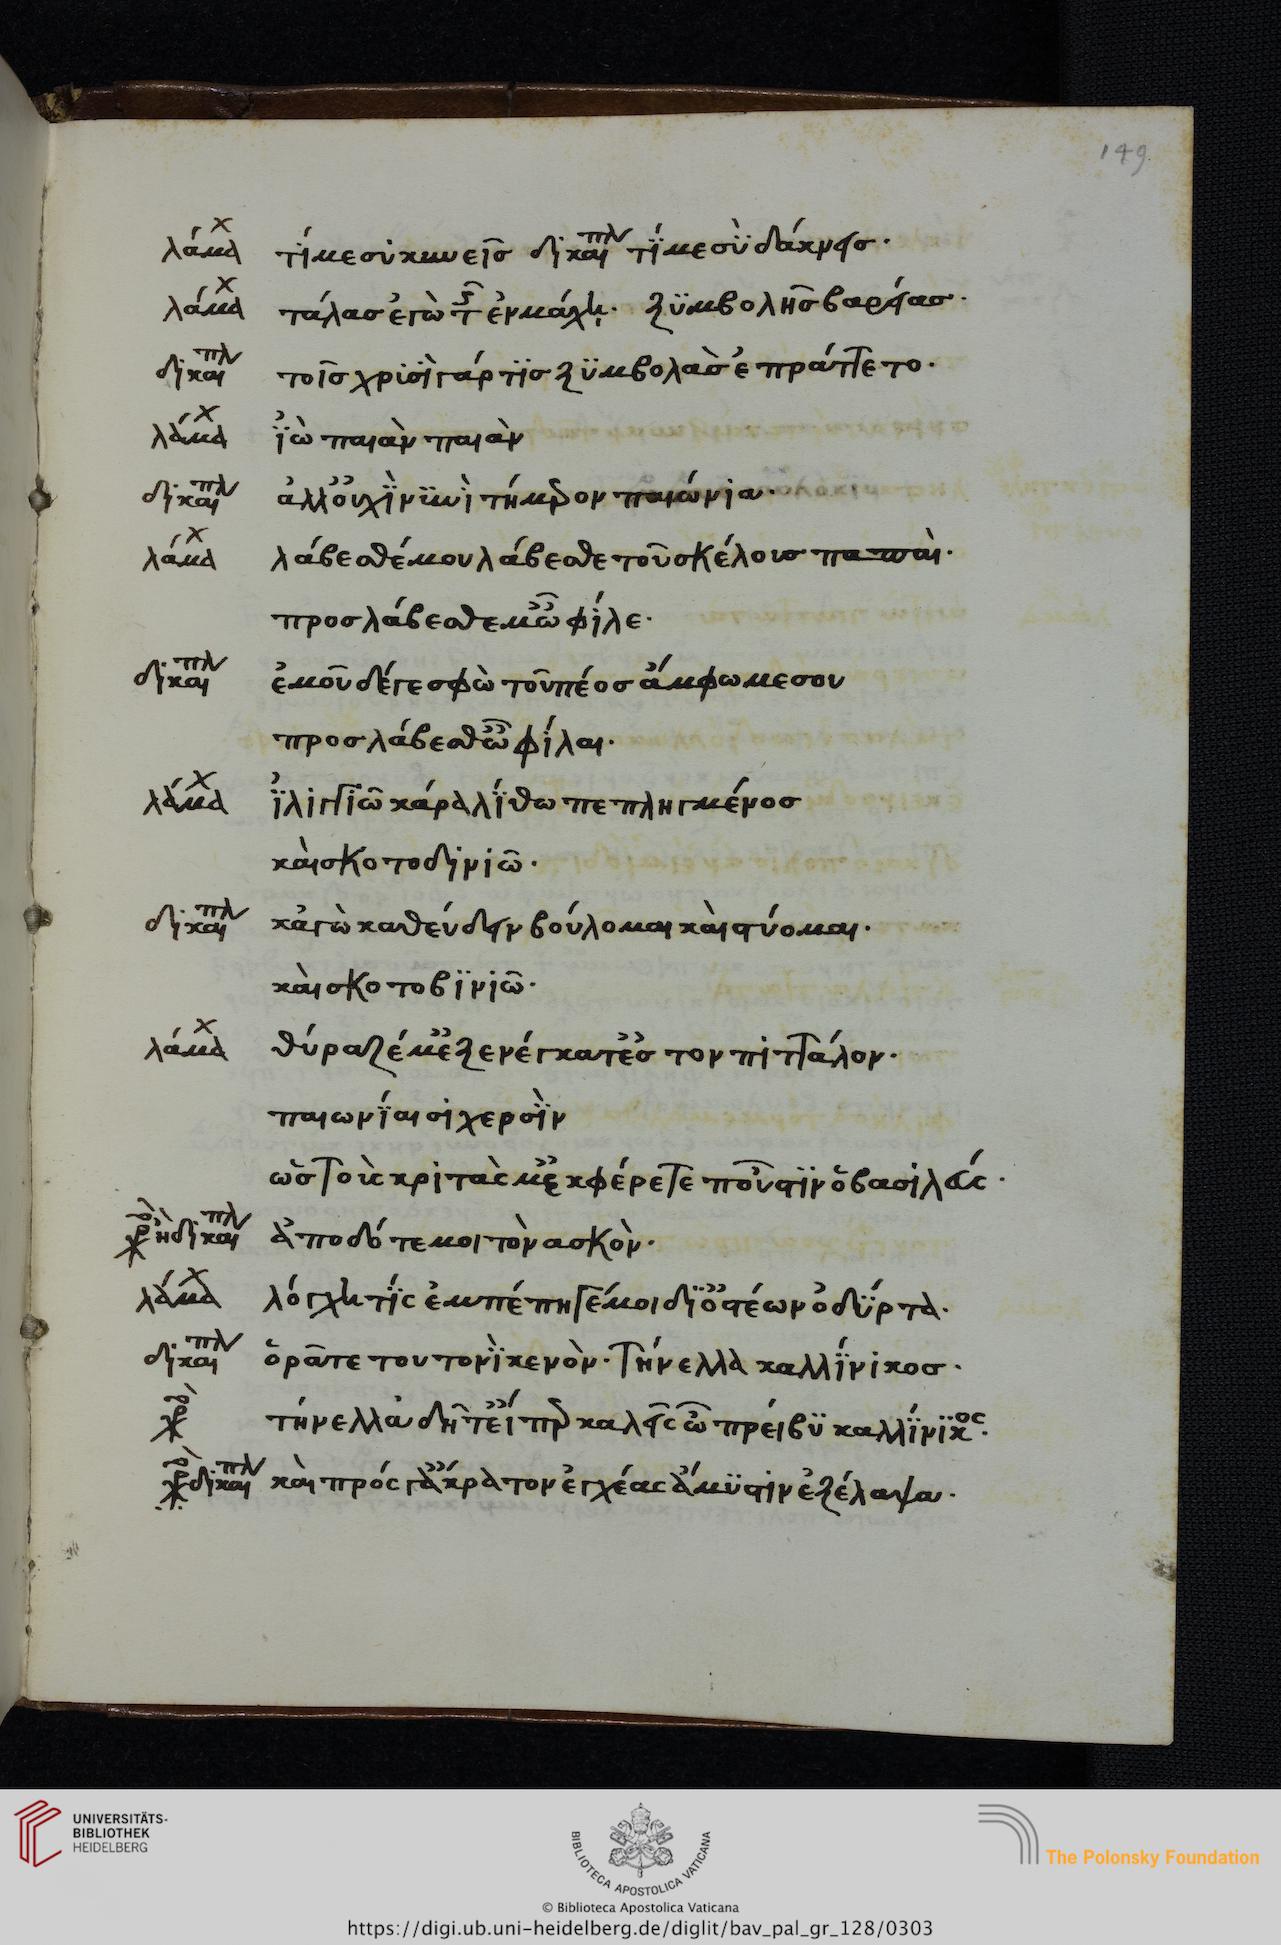 149.
λάμαχ τί με σὺ κυνεῖς δικαιπλ τί με σὺ δάκνεις·
λάμαχ τάλας ἐγὼ τ ἐν μάχη· ξυμβολῆς βαρείας·
δικαιπλ τοῖς χρισὶ γάρ τις ξυμβολὰς ἐπράττετο·
λάμαχ ἰὼ παιὰν παιὰν
δικαιπλ ἀλλ' οὐχὶ νυνὶ τήμερον παιώνια·
λάμαχ λάβεσθέ μου λάβεσθε τοῦ σκέλους παπαῖ·
προσλάβεσθέ μ' ὦ φίλε·
δικαιπλ ἐμοῦ δέ γε σφὼ τοῦ πέος ἄμφω μέσου
προσλάβεσθ' ὦ φίλαι·
λάμαχ ἰλιγγιῶ κάρα λίθω πεπληγμένος
καὶ σκοτοδινιῶ·
δικαιπλ κἀγὼ καθεύδειν βούλομαι καὶ στύομαι·
καὶ σκοτοβινιῶ·
λάμαχ θύραζέ μ' ἐξενέγκατ' ἐς τον πιττάλον·
παιωνίαισι χερσὶν
ὡς τοὺς κριτάς μ' ἐκφέρετε ποῦστιν ὁ βασιλεύς·
χορ ἢ δικαιπλ ἀπόδοτέ μοι τὸν ασκὸν·
λάμαχ λόγχη τίς ἐμπέπηγέ μοι δι' ὀστέων ὀδυρτά·
δικαιπλ ὁρᾶτε τουτονὶ κενὸν· τήνελλα καλλίνικος·
χορ τήνελλα δῆτ' εἴπερ καλεῖς ὦ πρέσβυ καλλίνικος·
χορ δικαιπλ καὶ πρός γ' ἄκρατον ἐγχέας ἄμυστιν ἐξέλαψα·
UNIVERSITÄTS-
BIBLIOTHEK
HEIDELBERG
BIBLIOTECA APOSTOLICA VATICANA
The Polonsky Foundation
© Biblioteca Apostolica Vaticana
https://digi.ub.uni-heidelberg.de/diglit/bav_pal_gr_128/0303